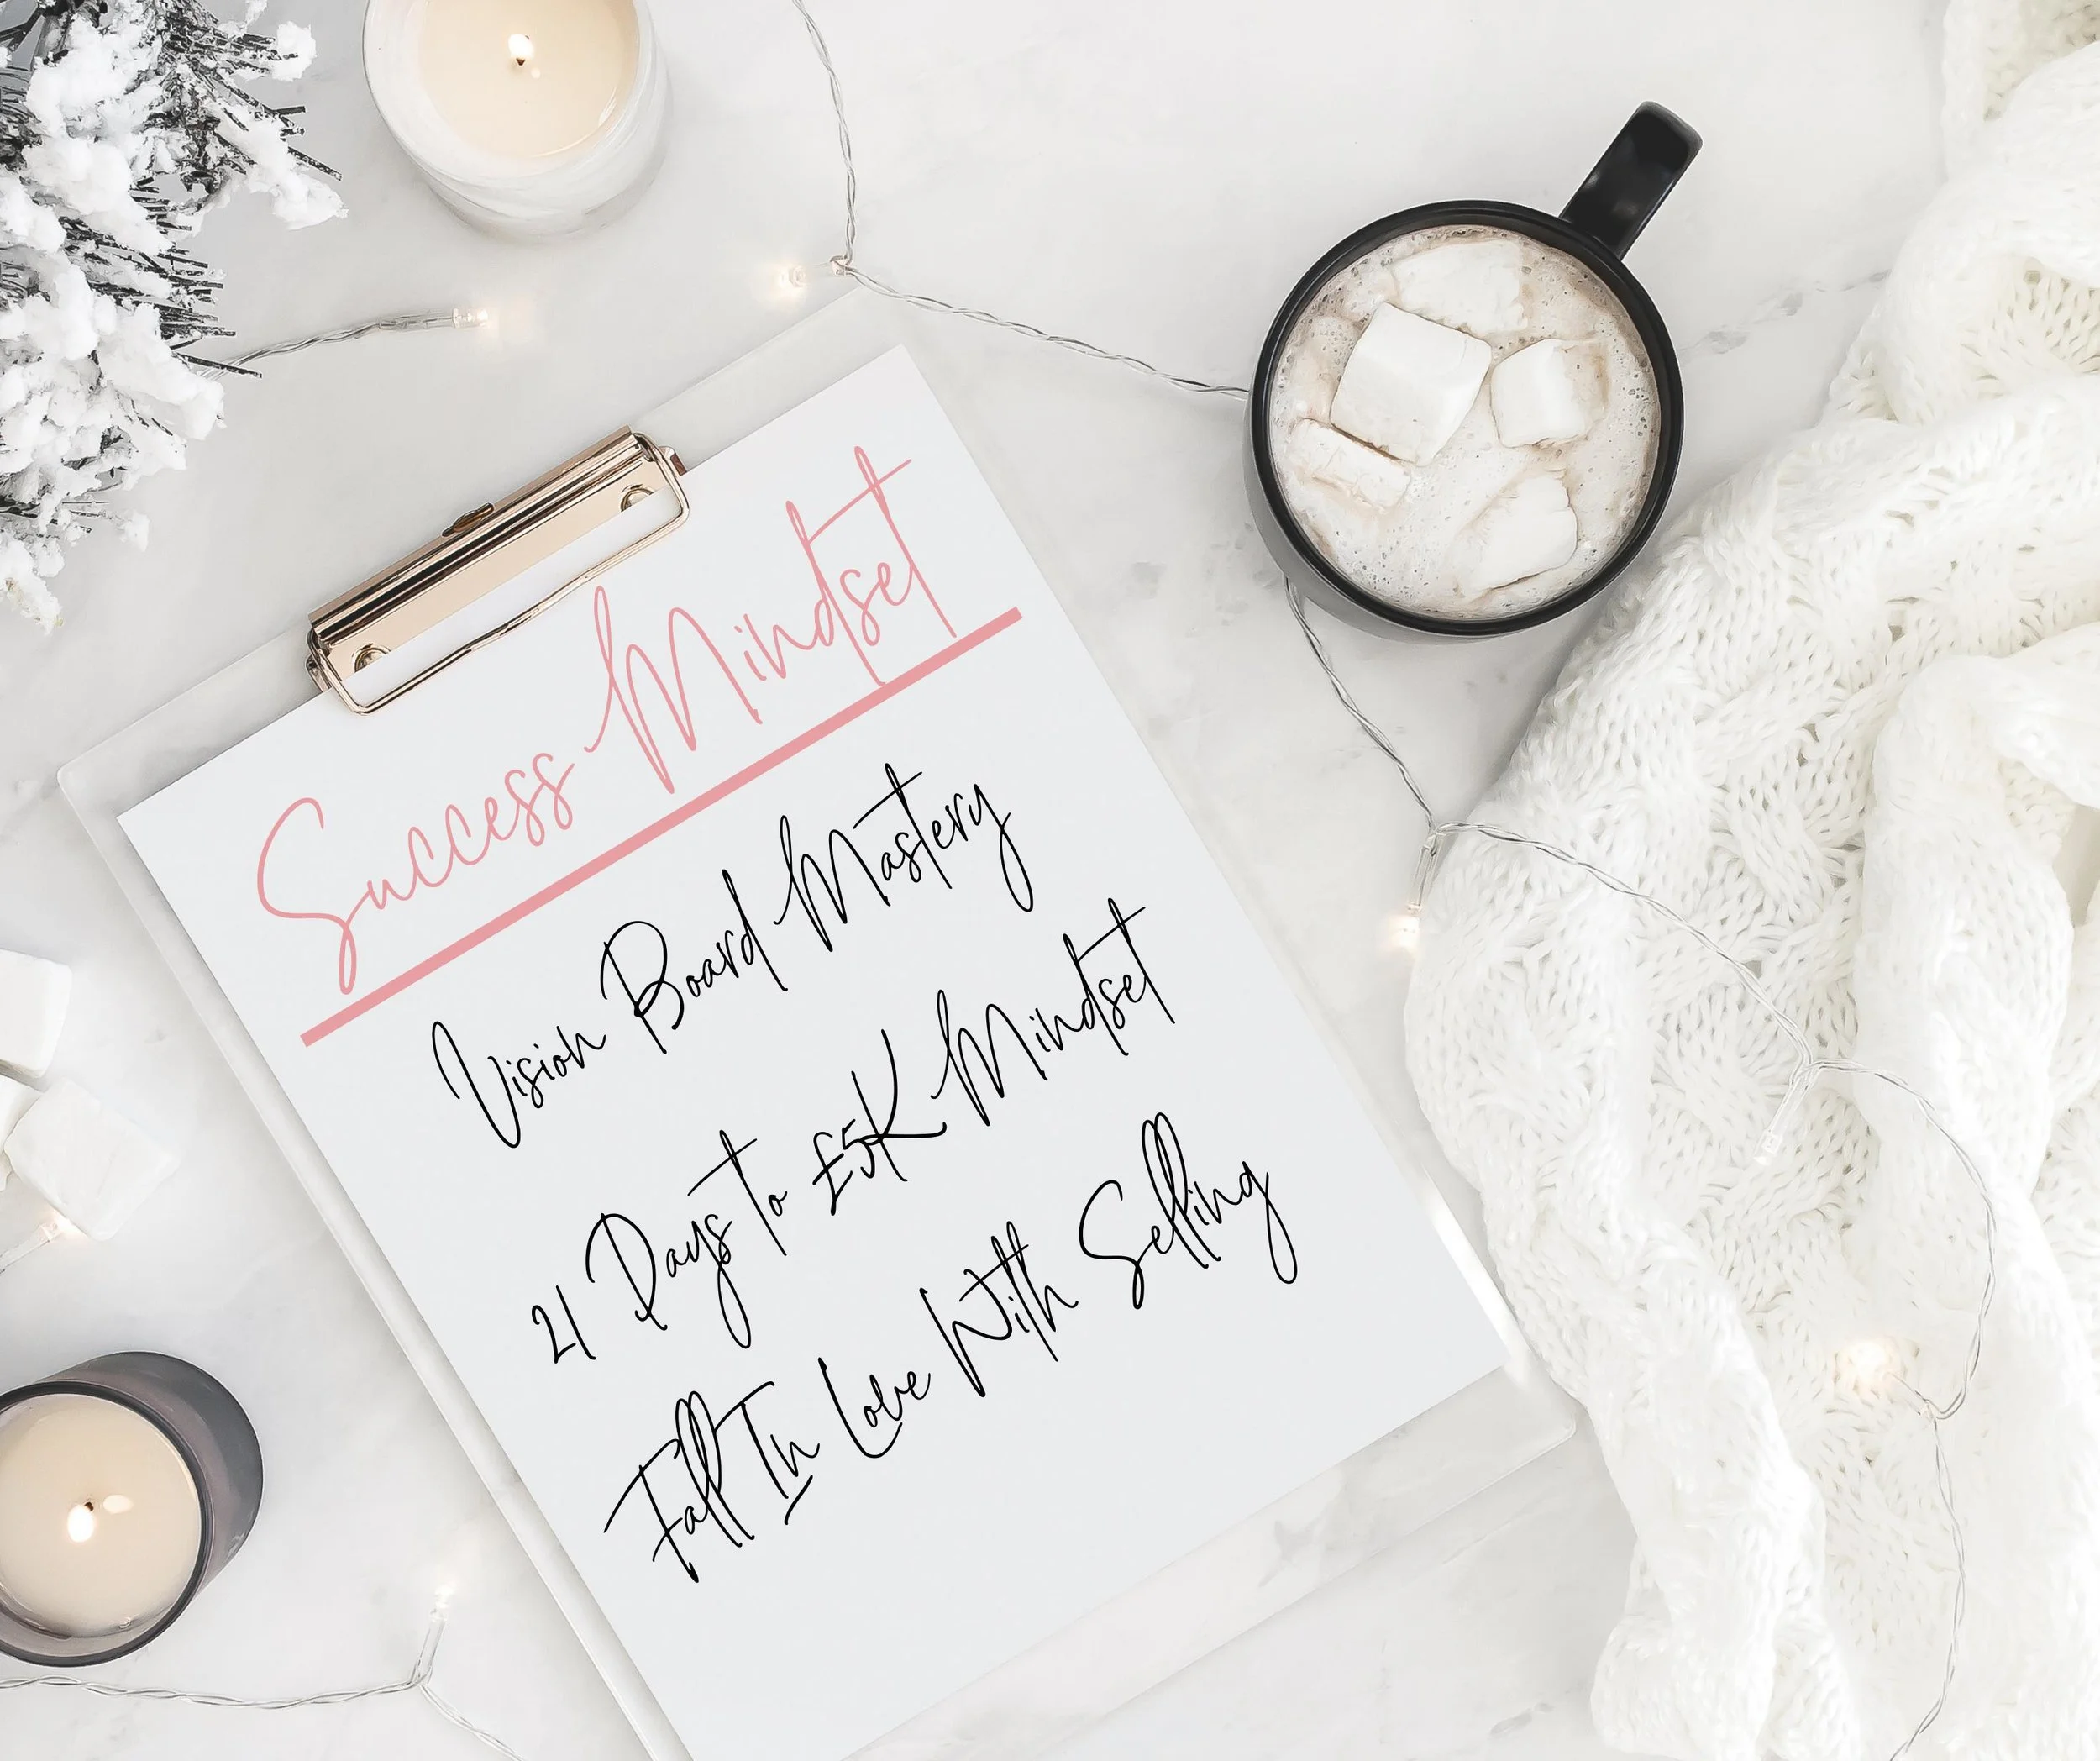 Success Mindset
Vision Board Mastery
21 Days to £5K Mindset
Fall In Love With Selling